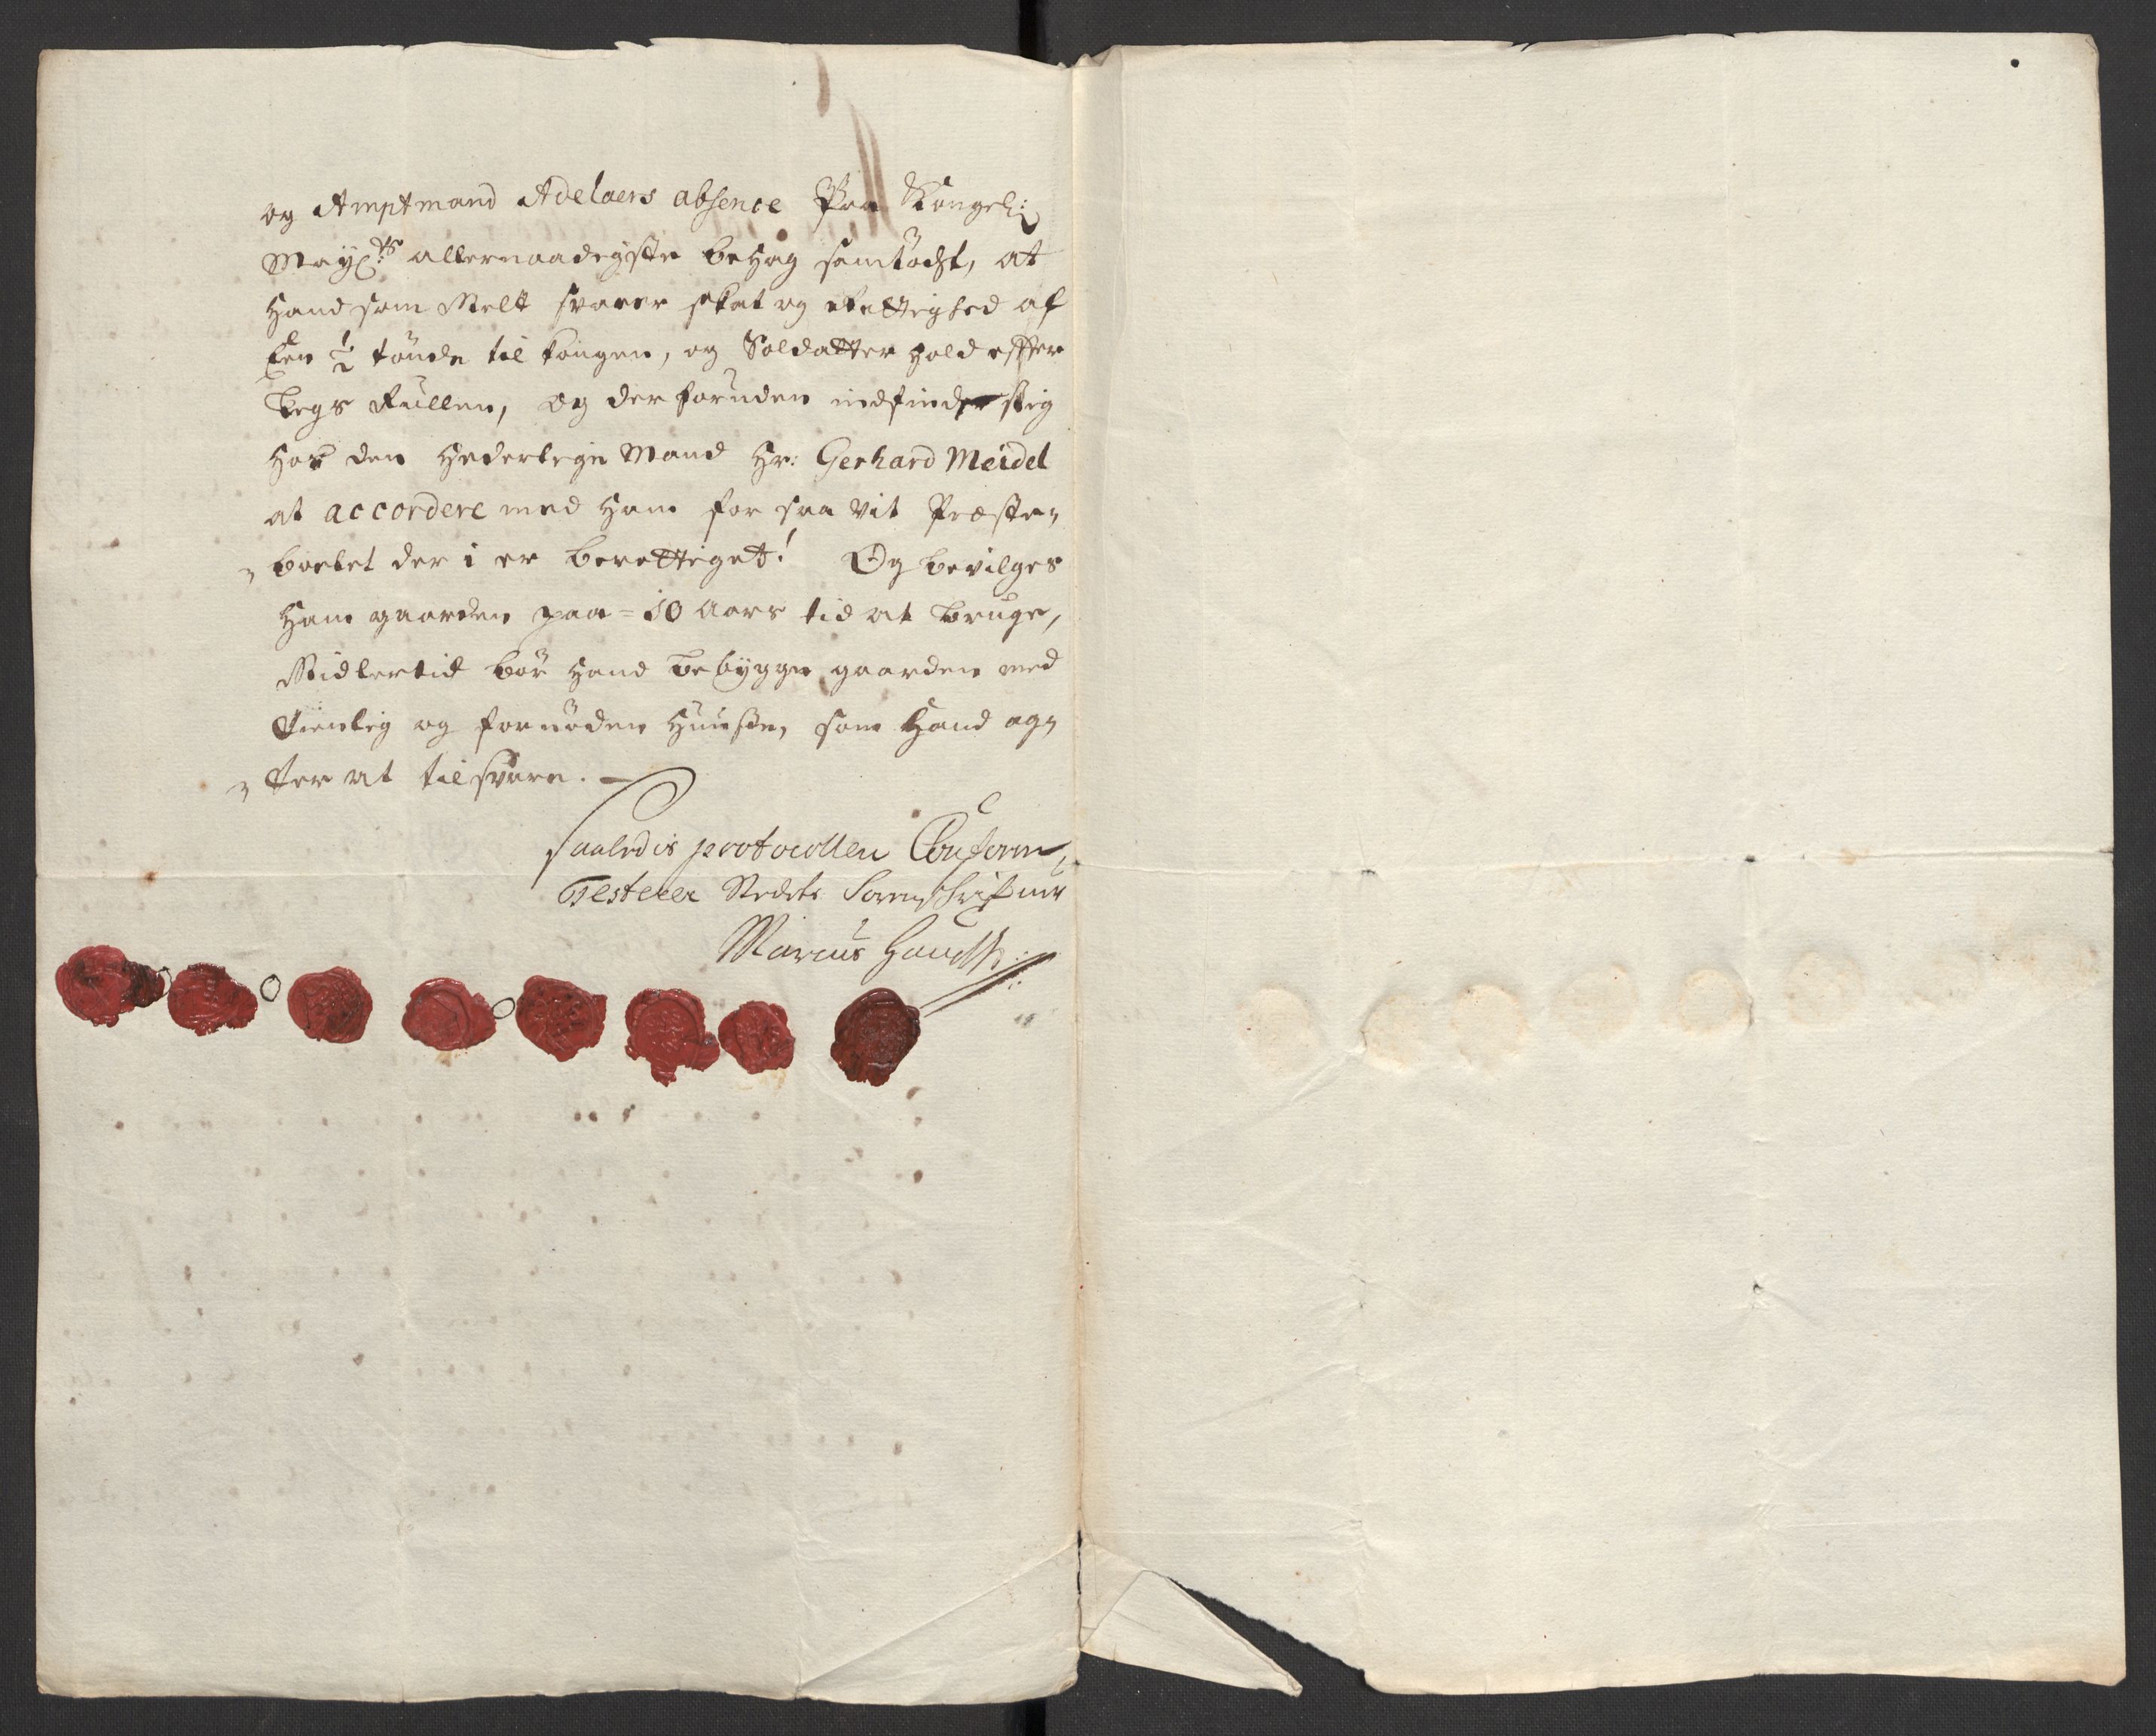 og Amptmand Adelaers absence Paa Kongel:
Mayts allernaadigste behag samtöcht, at
hand som Melt svarer skat og rettighed af
Een ½ tönde til kongen, og Soldatter hold effter
legs Rullen, og der foruden indfinder sig
hos den hederlige Mand Hr: Gerhard Meidel
at accordere med ham for saa vit Præste-
bolet der i er berettiget! Og bevilges
ham gaarden paa = 10 aars tid at bruge,
Midlertid bör hand bebygge gaarden med
tienlig og fornöden huusse, som hand ag-
ter at tilsvare.
Saaledis protocollen Conform,
Testerer Stedets Sorenskrifuer
Marcus